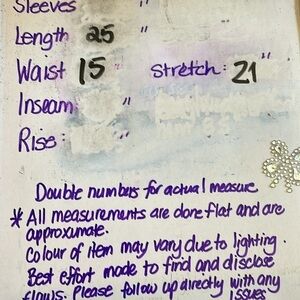 Sleeves "
Length 25 "
Waist 15 " Stretch: 21 "
Inseam "
Rise: "
Double numbers for actual measure
* All measurements are done flat and are
approximate.
Colour of item may vary due to lighting.
Best effort made to find and disclose
flaws. Please follow up directly with any
issues